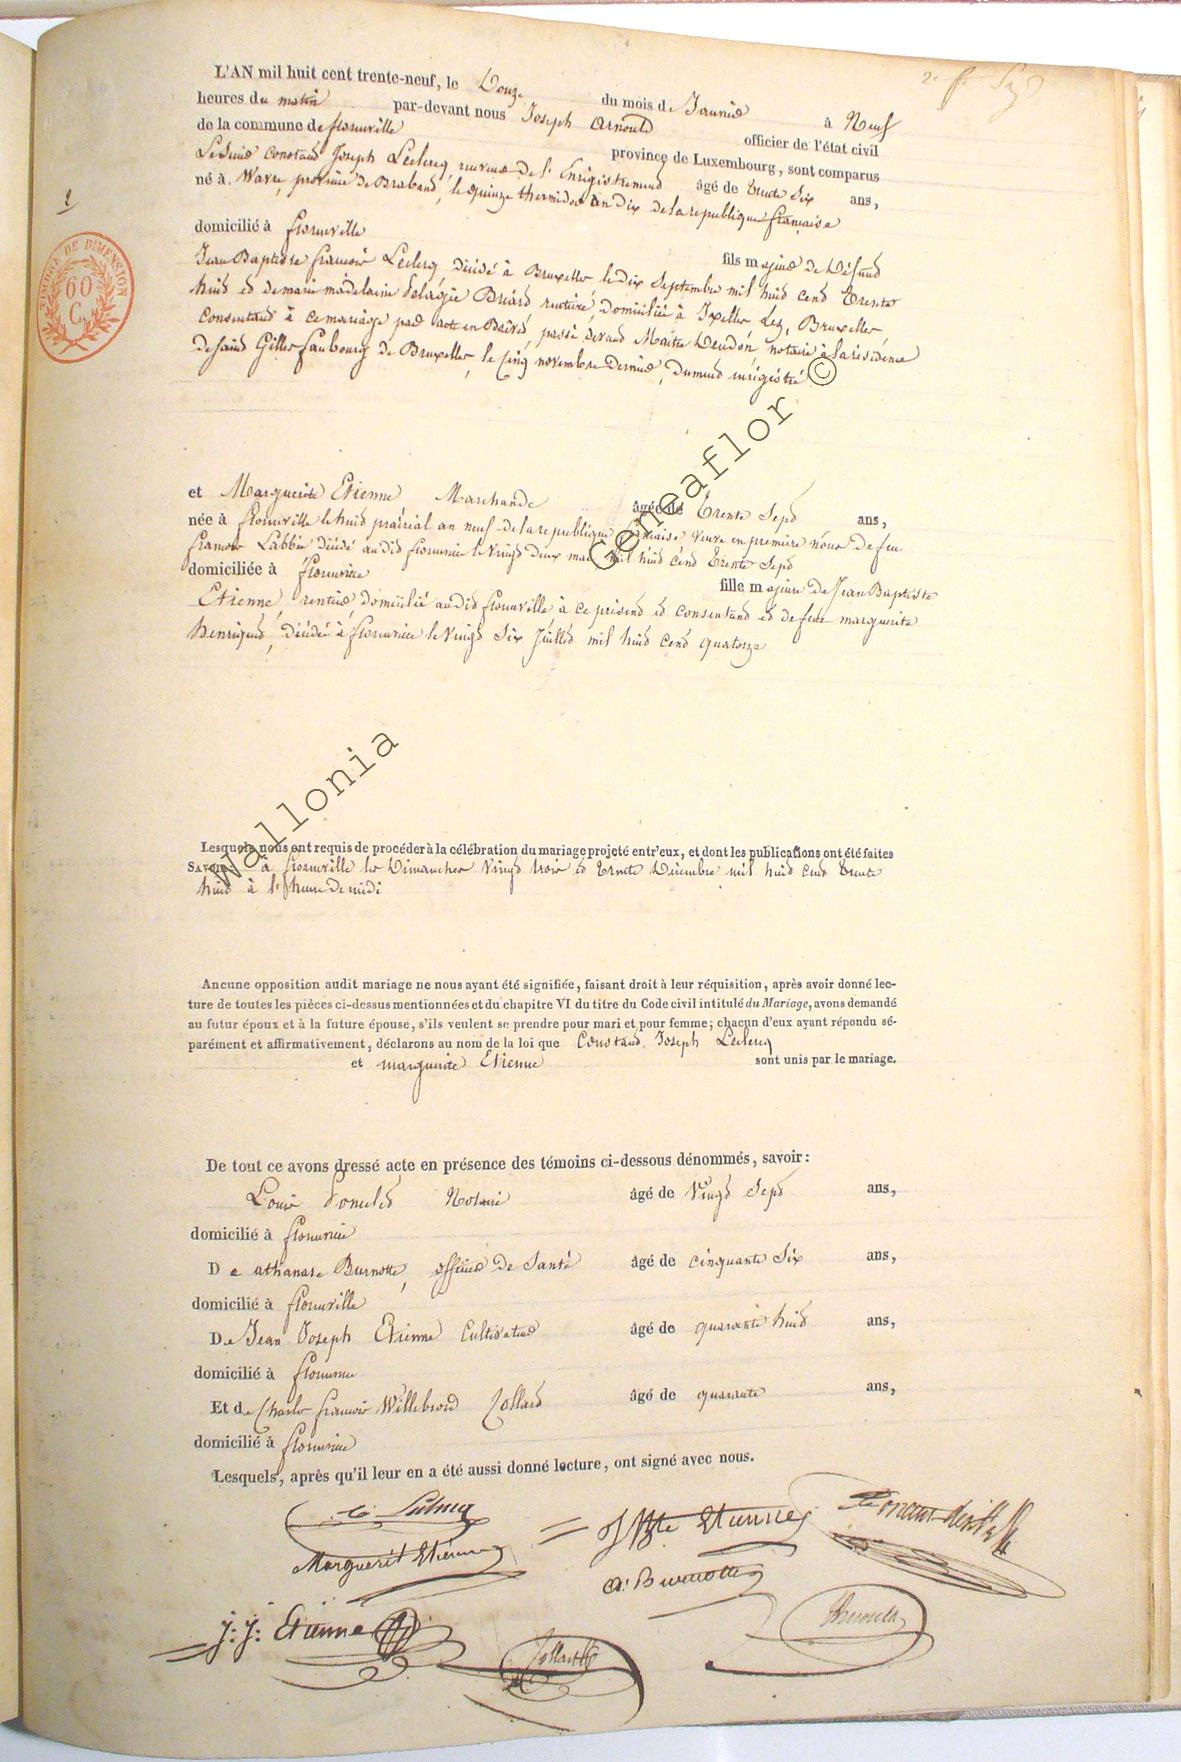 L'AN mil huit cent trente-neuf, le Douze du mois de Janvier à Neuf
heures du matin par-devant nous Joseph Arnould officier de l'état civil
de la commune de florenville province de Luxembourg, sont comparus
Le Sieur Constant Joseph Leclercq, receveur de l'Enrigistrement âgé de trente Six ans,
né à Wavre, province de Braband, le quinze thermidor an dix de la republique francaise
domicilié à florenville fils majeur de Défunt
Jean Baptiste francois Leclercq, décédé à Bruxelles le dix Septembre mil huit cent trente
huit et de marie madelaine Pelagie Briard rentière, domiciliée à Ixelles Lez, Bruxelles,
Consentant à ce mariage par acte en Brévet, passé devant Maitre Heudon, notaire à la résidence
de saint Gilles faubourg de Bruxelles, le Cinq novembre dernier, dument enrigistré
et Marguerite Etienne Marchande âgée de trente Sept ans,
née à florenville le huit prairial an neuf de la republique francaise veuve en premiere noce de feu
francois Labbé décédé audit florenville le vingt deux mai mil huit cent trente Sept
domiciliée à florenville fille majeure de Jean Baptiste
Etienne rentier domicilié audit florenville à ce présent et consentant et de feue marguerite
henriquet, décédée à florenville le vingt Six Juillet mil huit cent quatorze
Lesquels nous ont requis de procéder à la célébration du mariage projeté entr'eux, et dont les publications ont été faites
SAVOIR: à florenville les Dimanches vingt trois et trente Décembre mil huit cent trente
huit à l'heure de midi
Aucune opposition audit mariage ne nous ayant été signifiée, faisant droit à leur réquisition, après avoir donné lec-
ture de toutes les pièces ci-dessus mentionnées et du chapitre VI du titre du Code civil intitulé du Mariage, avons demandé
au futur époux et à la future épouse, s'ils veulent se prendre pour mari et pour femme; chacun d'eux ayant répondu sé-
parément et affirmativement, déclarons au nom de la loi que Constant Joseph Leclercq
et marguerite Etienne sont unis par le mariage.
De tout ce avons dressé acte en présence des témoins ci-dessous dénommés, savoir:
Louis Notaire âgé de Vingt Sept ans,
domicilié à florenville
De athanase Burnotte, officier de Santé âgé de cinquante Six ans,
domicilié à florenville
De Jean Joseph Etienne Cultivateur âgé de quarante huit ans,
domicilié à florenville
Et de Charles francois Willebrord Collard âgé de quarante ans,
domicilié à florenville
Lesquels, après qu'il leur en a été aussi donné lecture, ont signé avec nous.
Marguerit Etienne
J Bte Etienne
A. Burnotte
J: J: Etienne
Collard
Arnould
TIMBRE DE DIMENSION
60
C.
Wallonia Geneaflor ©